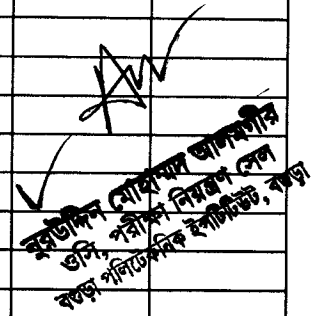 নুরউদ্দিন মোহাম্মদ আলমগীর
ওসি, পরীক্ষা নিয়ন্ত্রণ সেল
বগুড়া পলিটেকনিক ইন্সটিটিউট, বগুড়া